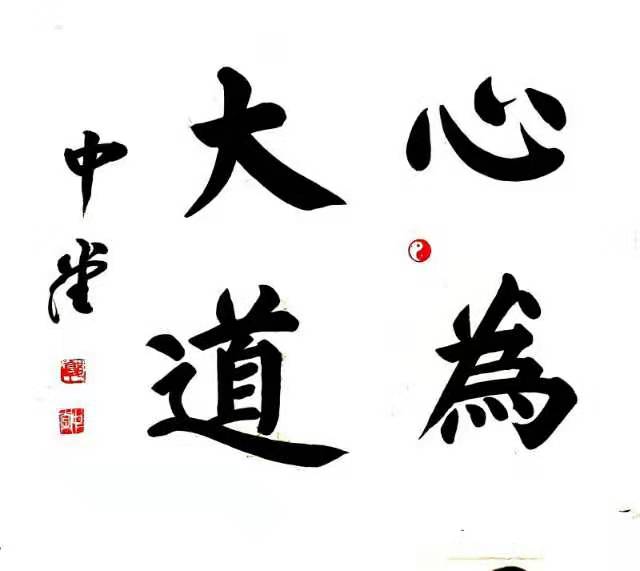 心為
大道
中